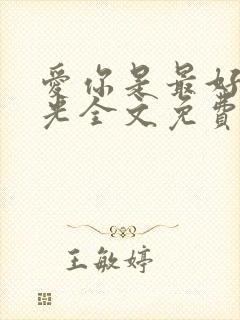 爱你是最好
光全文免费
王敏婷